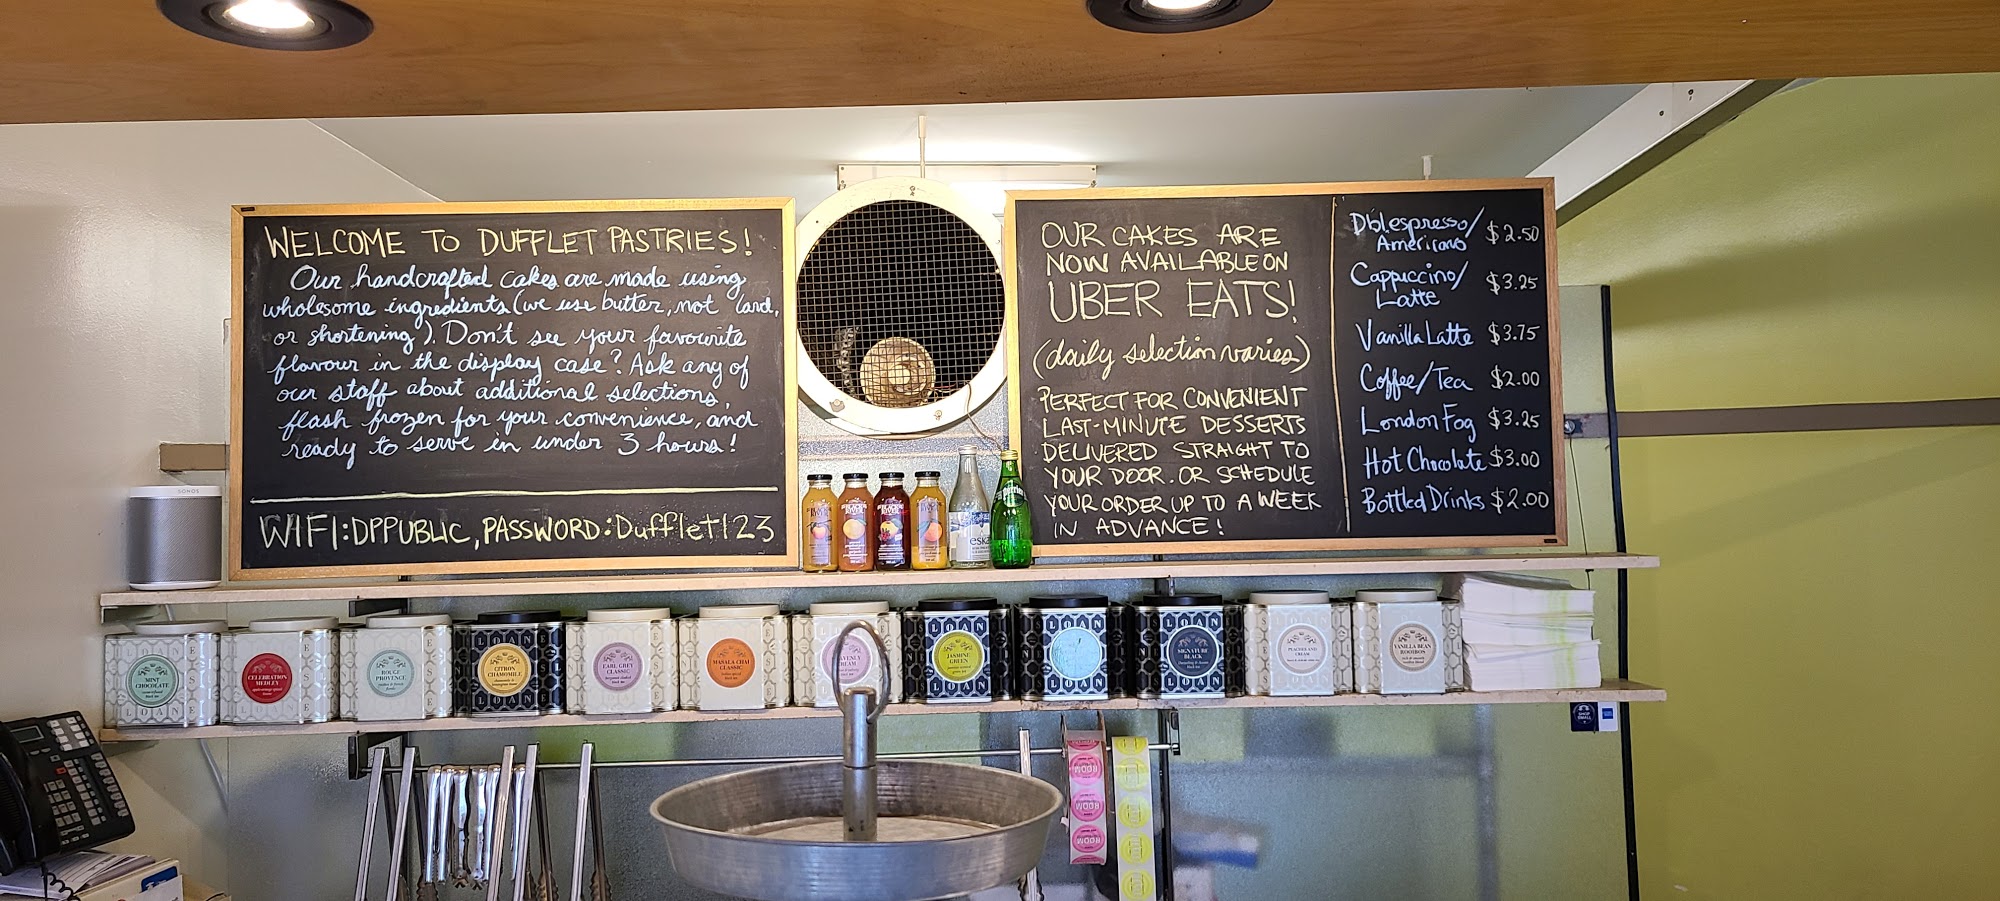 WELCOME TO DUFFLET PASTRIES!
Our handcrafted cakes are made using
wholesome ingredients (we use butter, not lard,
or shortening). Don't see your favourite
flavour in the display case? Ask any of
our staff about additional selections,
flash frozen for your convenience, and
ready to serve in under 3 hours!
WIFI: DPPUBLIC, PASSWORD: Dufflet123
OUR CAKES ARE
NOW AVAILABLE ON
UBER EATS!
(daily selection varies)
PERFECT FOR CONVENIENT
LAST-MINUTE DESSERTS
DELIVERED STRAIGHT TO
YOUR DOOR. OR SCHEDULE
YOUR ORDER UP TO A WEEK
IN ADVANCE!
Dbl.espresso/
Americano $2.50
Cappuccino/
Latte $3.25
Vanilla Latte $3.75
Coffee/Tea $2.00
London Fog $3.25
Hot Chocolate $3.00
Bottled Drinks $2.00
SONOS
eska
perrier
MINT
CHOCOLATE
CELEBRATION
MEDLEY
ROUGE
PROVENCE
CITRON
CHAMOMILE
EARL GREY
CLASSIC
MASALA CHAI
CLASSIC
JASMINE
GREEN
SIGNATURE
BLACK
PEACHES AND
CREAM
VANILLA BEAN
ROOIBOS
SLOAN
SLOAN
SLOAN
SLOAN
SHOP
SMALL
ROOM
ROOM
ROOM